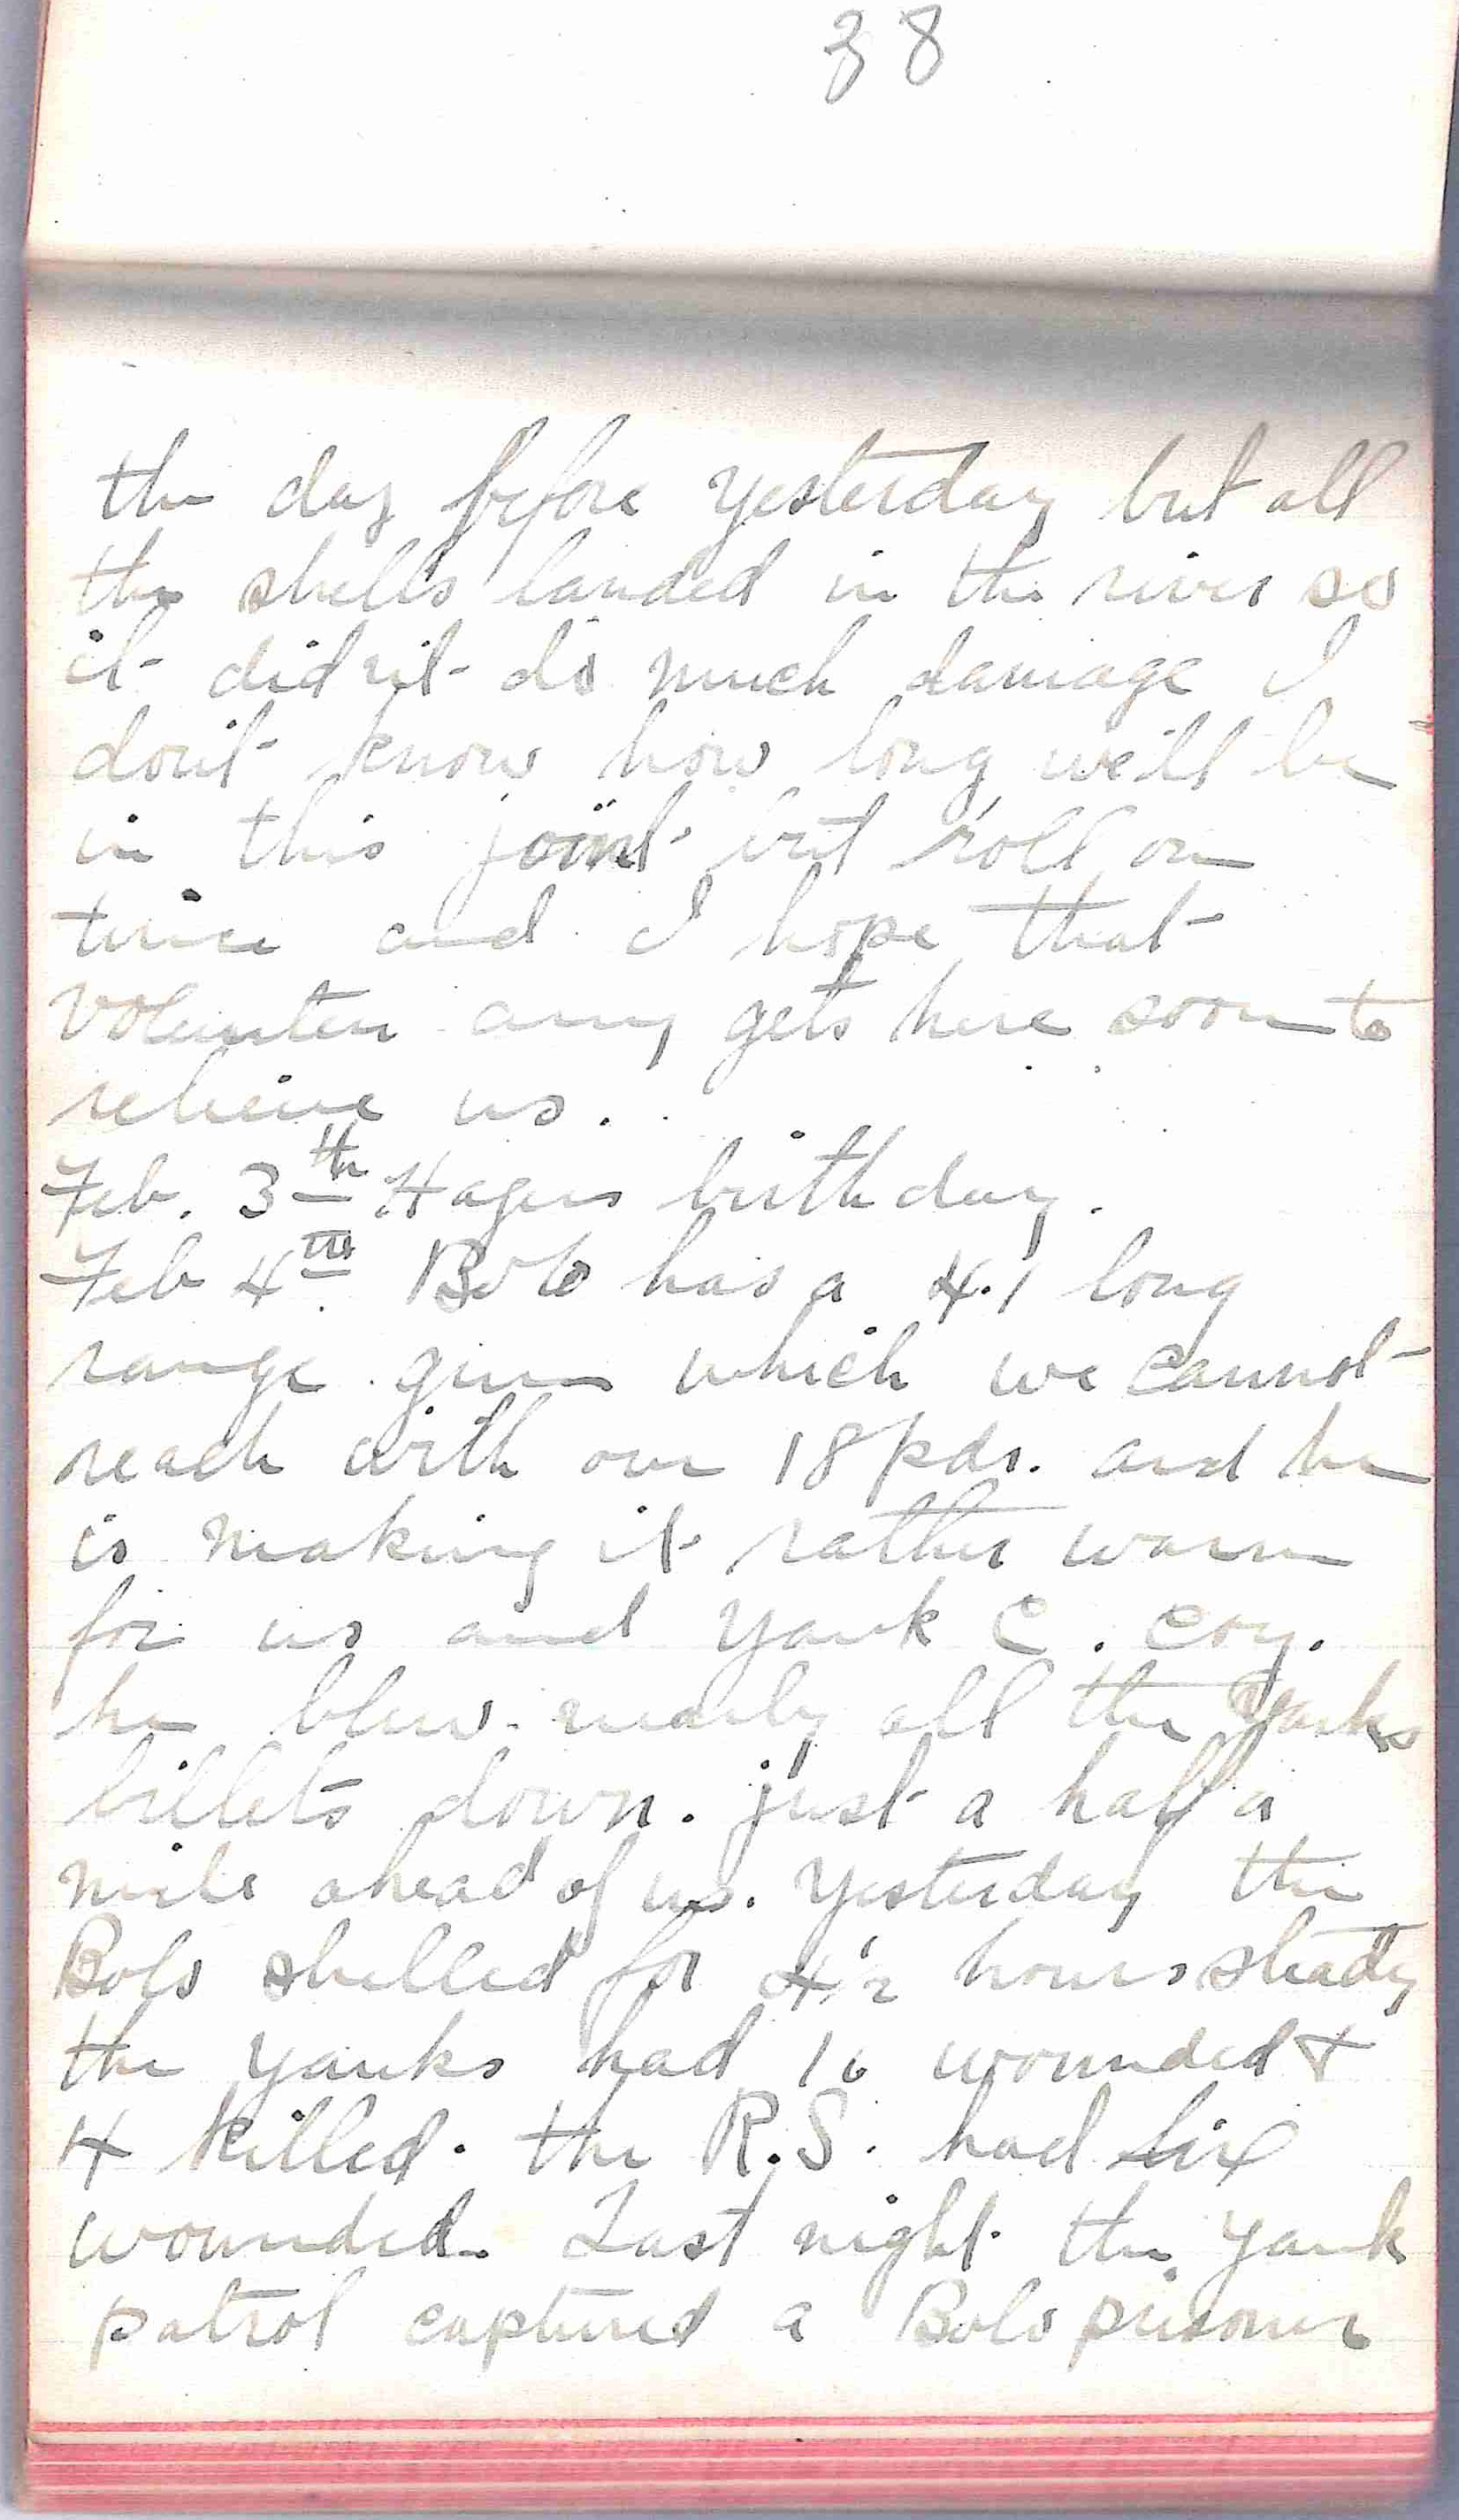 38
the day before yesterday but all
the shells landed in the river so
it didn't do much damage I
don't know how long we'll be
in this joint but roll on
time and I hope that
volunteer army gets here soon to
relieve us.
Feb. 3th Hagers birthday.
Feb 4th Bolo has a 4.1 long
range gun which we cannot
reach with our 18 pdr. and he
is making it rather warm
for us and Yank C. Coy.
he blew nearly all the Yanks
billets down. just a half a
mile ahead of us. Yesterday the
Bolo shelled for 4 1/2 hours steady
the Yanks had 16 wounded &
4 killed. the R.S. had six
wounded. Last night the Yank
patrol captured a Bolo prisoner